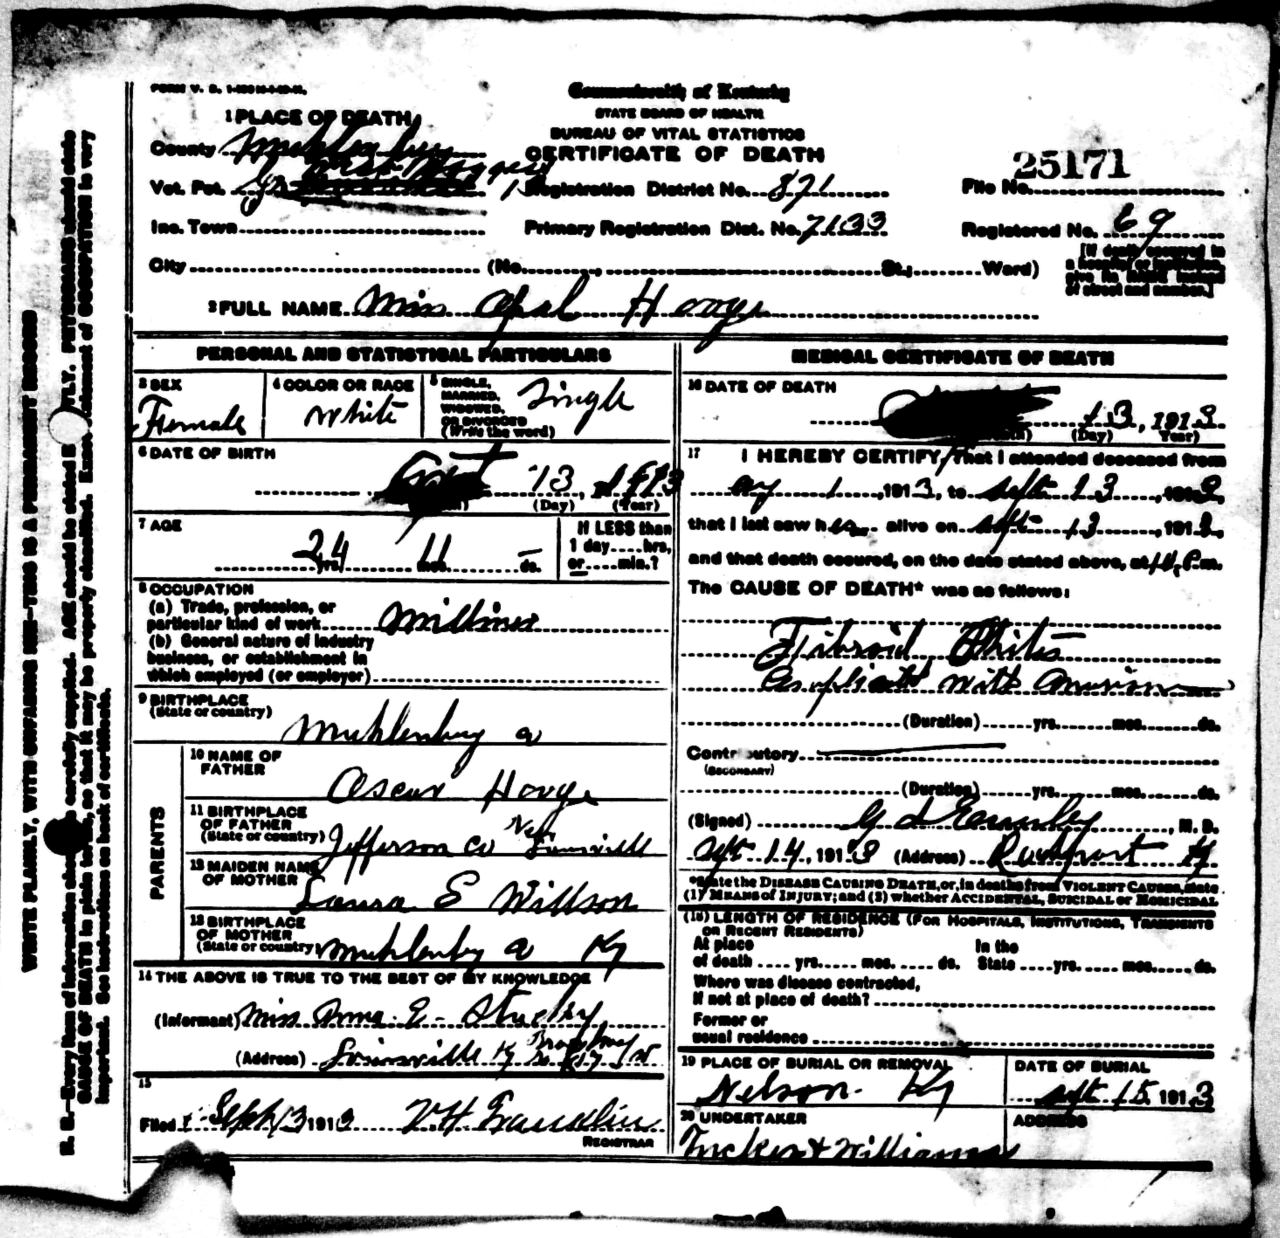 Commonwealth of Kentucky
STATE BOARD OF HEALTH
BUREAU OF VITAL STATISTICS
CERTIFICATE OF DEATH
1 PLACE OF DEATH
County
Vot. Pct.
Inc. Town
City (No. , St.; Ward)
Registration District No. 871
Primary Registration Dist. No. 7133
25171
File No.
Registered No. 69
[If death occurred in
a hospital or institution,
give its NAME instead
of street and number.]
2 FULL NAME Miss Opal Hooge
PERSONAL AND STATISTICAL PARTICULARS
3 SEX
Female
4 COLOR OR RACE
White
5 SINGLE,
MARRIED,
WIDOWED,
OR DIVORCED
(Write the word)
Single
6 DATE OF BIRTH
13,
(Day) (Year)
7 AGE
24 yrs. 11 mos. – ds.
If LESS than
1 day....hrs,
or.....min.?
8 OCCUPATION
(a) Trade, profession, or
particular kind of work Milliner
(b) General nature of industry
business, or establishment in
which employed (or employer)
9 BIRTHPLACE
(State or country)
Muhlenburg
PARENTS
10 NAME OF
FATHER
Oscar Hooge
11 BIRTHPLACE
OF FATHER
(State or country)
Jefferson Co Near Louisville
12 MAIDEN NAME
OF MOTHER
Laura E Willson
13 BIRTHPLACE
OF MOTHER
(State or country)
Ky
14 THE ABOVE IS TRUE TO THE BEST OF MY KNOWLEDGE
(Informant) Miss Anna E.
(Address) Louisville Ky
15
Filed Sept 13 1913
REGISTRAR
MEDICAL CERTIFICATE OF DEATH
16 DATE OF DEATH
13, 1913
(Day) (Year)
17 I HEREBY CERTIFY, That I attended deceased from
1, 1913, to Sept 13, 1913,
that I last saw her alive on Sept 13, 1913,
and that death occured, on the date stated above, at
The CAUSE OF DEATH* was as follows:
Fibroid Phthisis
with
(Duration) yrs. mos. ds.
Contributory
(SECONDARY)
(Duration) yrs. mos. ds.
(Signed) , M. D.
Sept 14, 1913 (Address) Ky
*State the DISEASE CAUSING DEATH, or, in deaths from VIOLENT CAUSES, state
(1) MEANS OF INJURY; and (2) whether ACCIDENTAL, SUICIDAL or HOMICIDAL
(18) LENGTH OF RESIDENCE (FOR HOSPITALS, INSTITUTIONS, TRANSIENTS
OR RECENT RESIDENTS)
At place In the
of death .... yrs. .... mos. .... ds. State .... yrs. .... mos. .... ds.
Where was disease contracted,
if not at place of death?
Former or
usual residence
19 PLACE OF BURIAL OR REMOVAL
Nelson Ky
DATE OF BURIAL
Sept 15, 1913
20 UNDERTAKER
Tucker & Williams
ADDRESS
WRITE PLAINLY, WITH UNFADING INK—THIS IS A PERMANENT RECORD
important. See instructions on back of certificate.